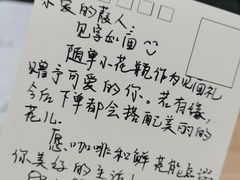 亲爱的殿人:
见字如面
随单小花靓作为见面礼
赠予可爱的你。若有缘,
今后下单都会搭配美丽的
花儿。
愿咖啡和鲜花能点缀
你美好的生活!